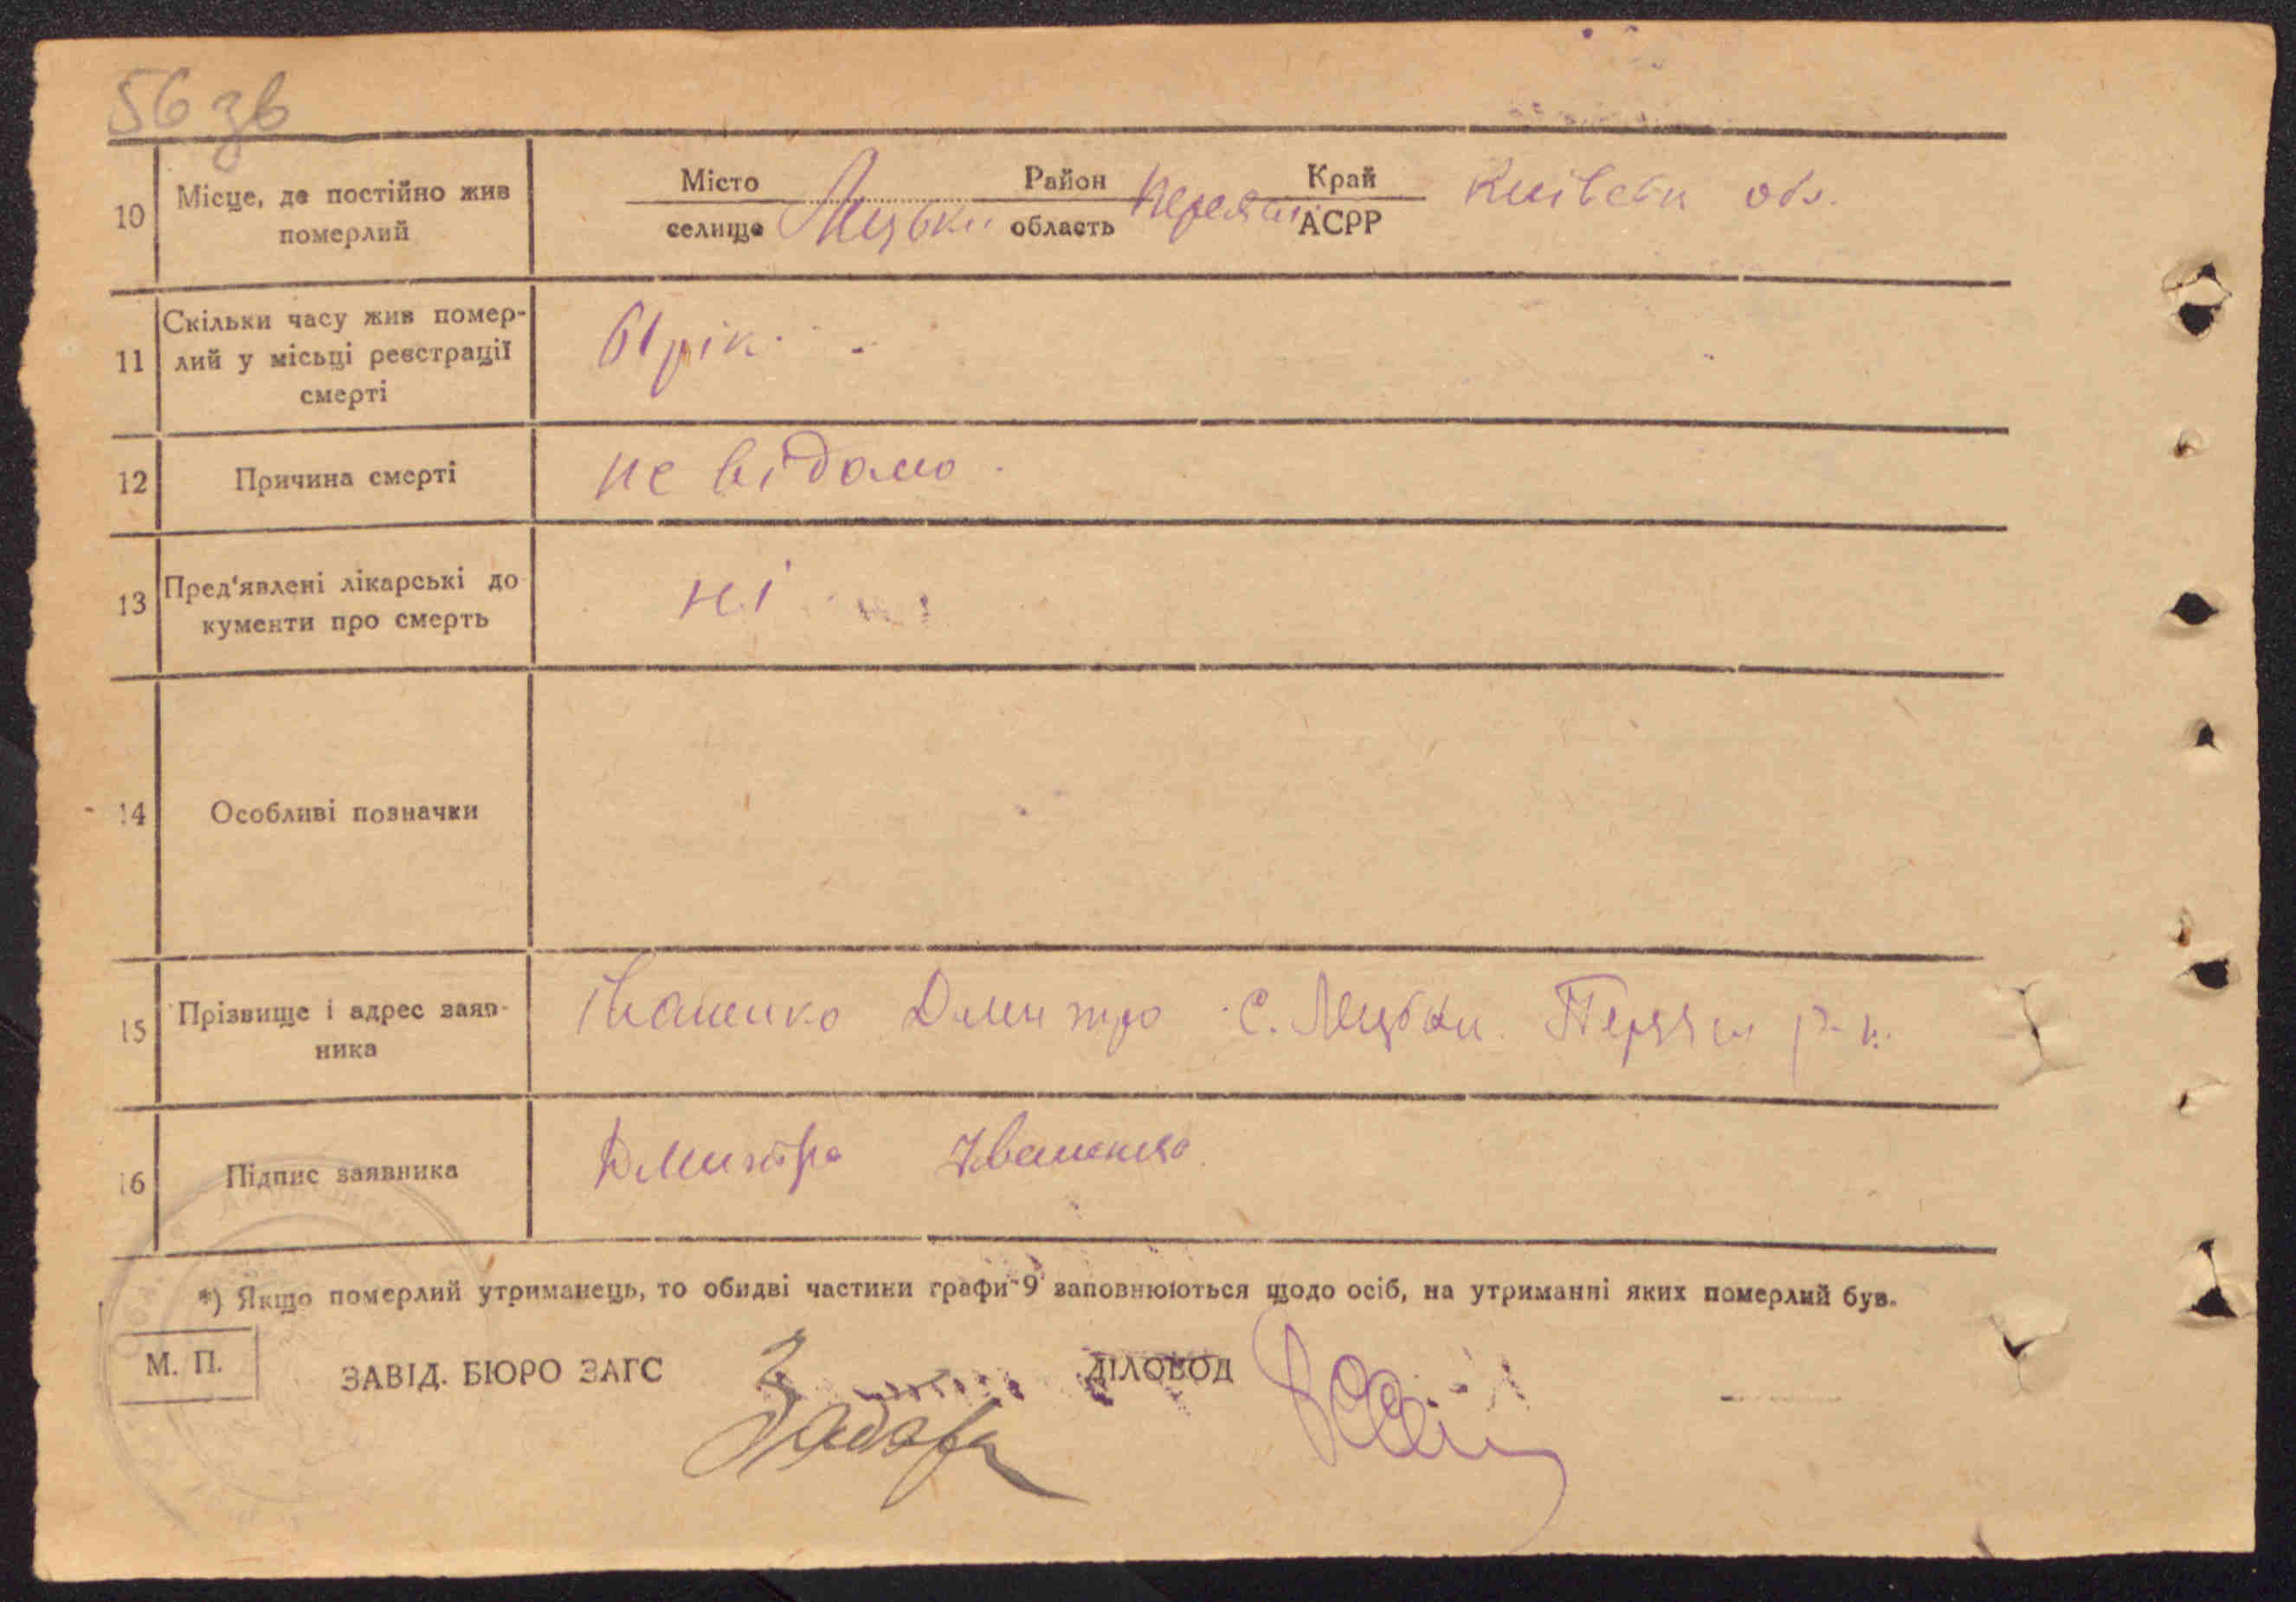 56 зв
10 Місце, де постійно жив померлий
Місто селище Лецьки Район область Переясл. Край АСРР Київськ обл.
11 Скільки часу жив помер-
лий у місьці реєстрації
смерті
61 рік.
12 Причина смерті не відомо.
13 Пред'явлені лікарські до
кументи про смерть
ні
14 Особливі позначки
15 Прізвище і адрес заяв-
ника
Іваненко Дмитро с. Лецьки Переясл р-н.
16 Підпис заявника Дмитро Іваненко
*) Якщо померлий утриманець, то обидві частини графи 9 заповнюються щодо осіб, на утриманні яких померлий був.
М. П. ЗАВІД. БЮРО ЗАГС ДІЛОВОД